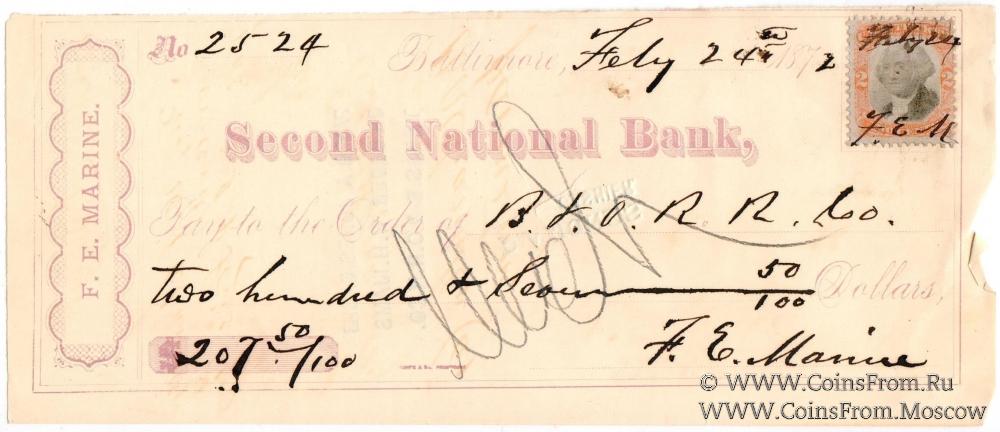 F. E. MARINE.
No 2524
Baltimore, Feby 24th 1872
Feby 24
2 2
F. E. M
Second National Bank,
Pay to the Order of B. & O. R. R. Co.
two hundred & Seven 50/100 Dollars,
$207 50/100
F. E. Marine
© WWW.CoinsFrom.Ru
WWW.CoinsFrom.Moscow